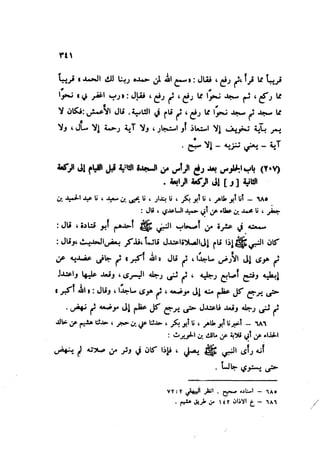 ٣٤١
قريباً مما قرأ، ثم رفع، فقال: «سمع الله لمن حمده ربنا لك الحمد» قريباً
مما ركع، ثم سجد نحوًا مما رفع، ثم رفع، فقال: «رب اغفر لي» نحوًا
مما سجد ثم سجد نحوًا مما رفع، ثم قام في الثانية. قال الأعمش: فكان لا
يمر بآية تخويف إلا استعاذ أو استجار، ولا آية رحمة إلا سأل، ولا
آية - يعني تنزيه - إلا سبح.
(٢٠٧) باب الجلوس بعد رفع الرأس من السجدة الثانية قبل القيام إلى الركعة
الثانية [و] إلى الركعة الرابعة.
٦٨٥ - أنا أبو طاهر، نا أبو بكر، نا بندار، نا يحيى بن سعيد، نا عبد الحميد بن
جعفر، نا محمد بن عطاء عن أبي حميد الساعدي، قال:
سمعته في عشرة من أصحاب النبي ﷺ أحدهم أبو قتادة، قال:
كان النبي ﷺ إذا قام إلى الصلاة اعتدل قائماً، فذكر بعض الحديث، وقال:
ثم هوى إلى الأرض ساجدًا، ثم قال: «الله أكبر» ثم جافى عضديه عن
إبطيه وفتح أصابع رجليه، ثم ثنى رجله اليسرى، وقعد عليها واعتدل
حتى يرجع كل عظم منه إلى موضعه، ثم هوى ساجدًا، وقال: «الله أكبر»
ثم ثنى رجله وقعد فاعتدل حتى يرجع كل عظم إلى موضعه ثم نهض.
٦٨٦ - أخبرنا أبو طاهر، نا أبو بكر، حدثنا علي بن حجر، حدثنا هشيم عن خالد
الحذاء عن أبي قلابة عن مالك بن الحويرث:
أنه رأى النبي ﷺ يصلي، فإذا كان في وتر من صلاته لم ينهض
حتى يستوي جالساً.
٦٨٥ - إسناده صحيح. انظر البيهقي ٢: ٧٢
٦٨٦ - خ الأذان ١٤٢ من طريق هشيم.